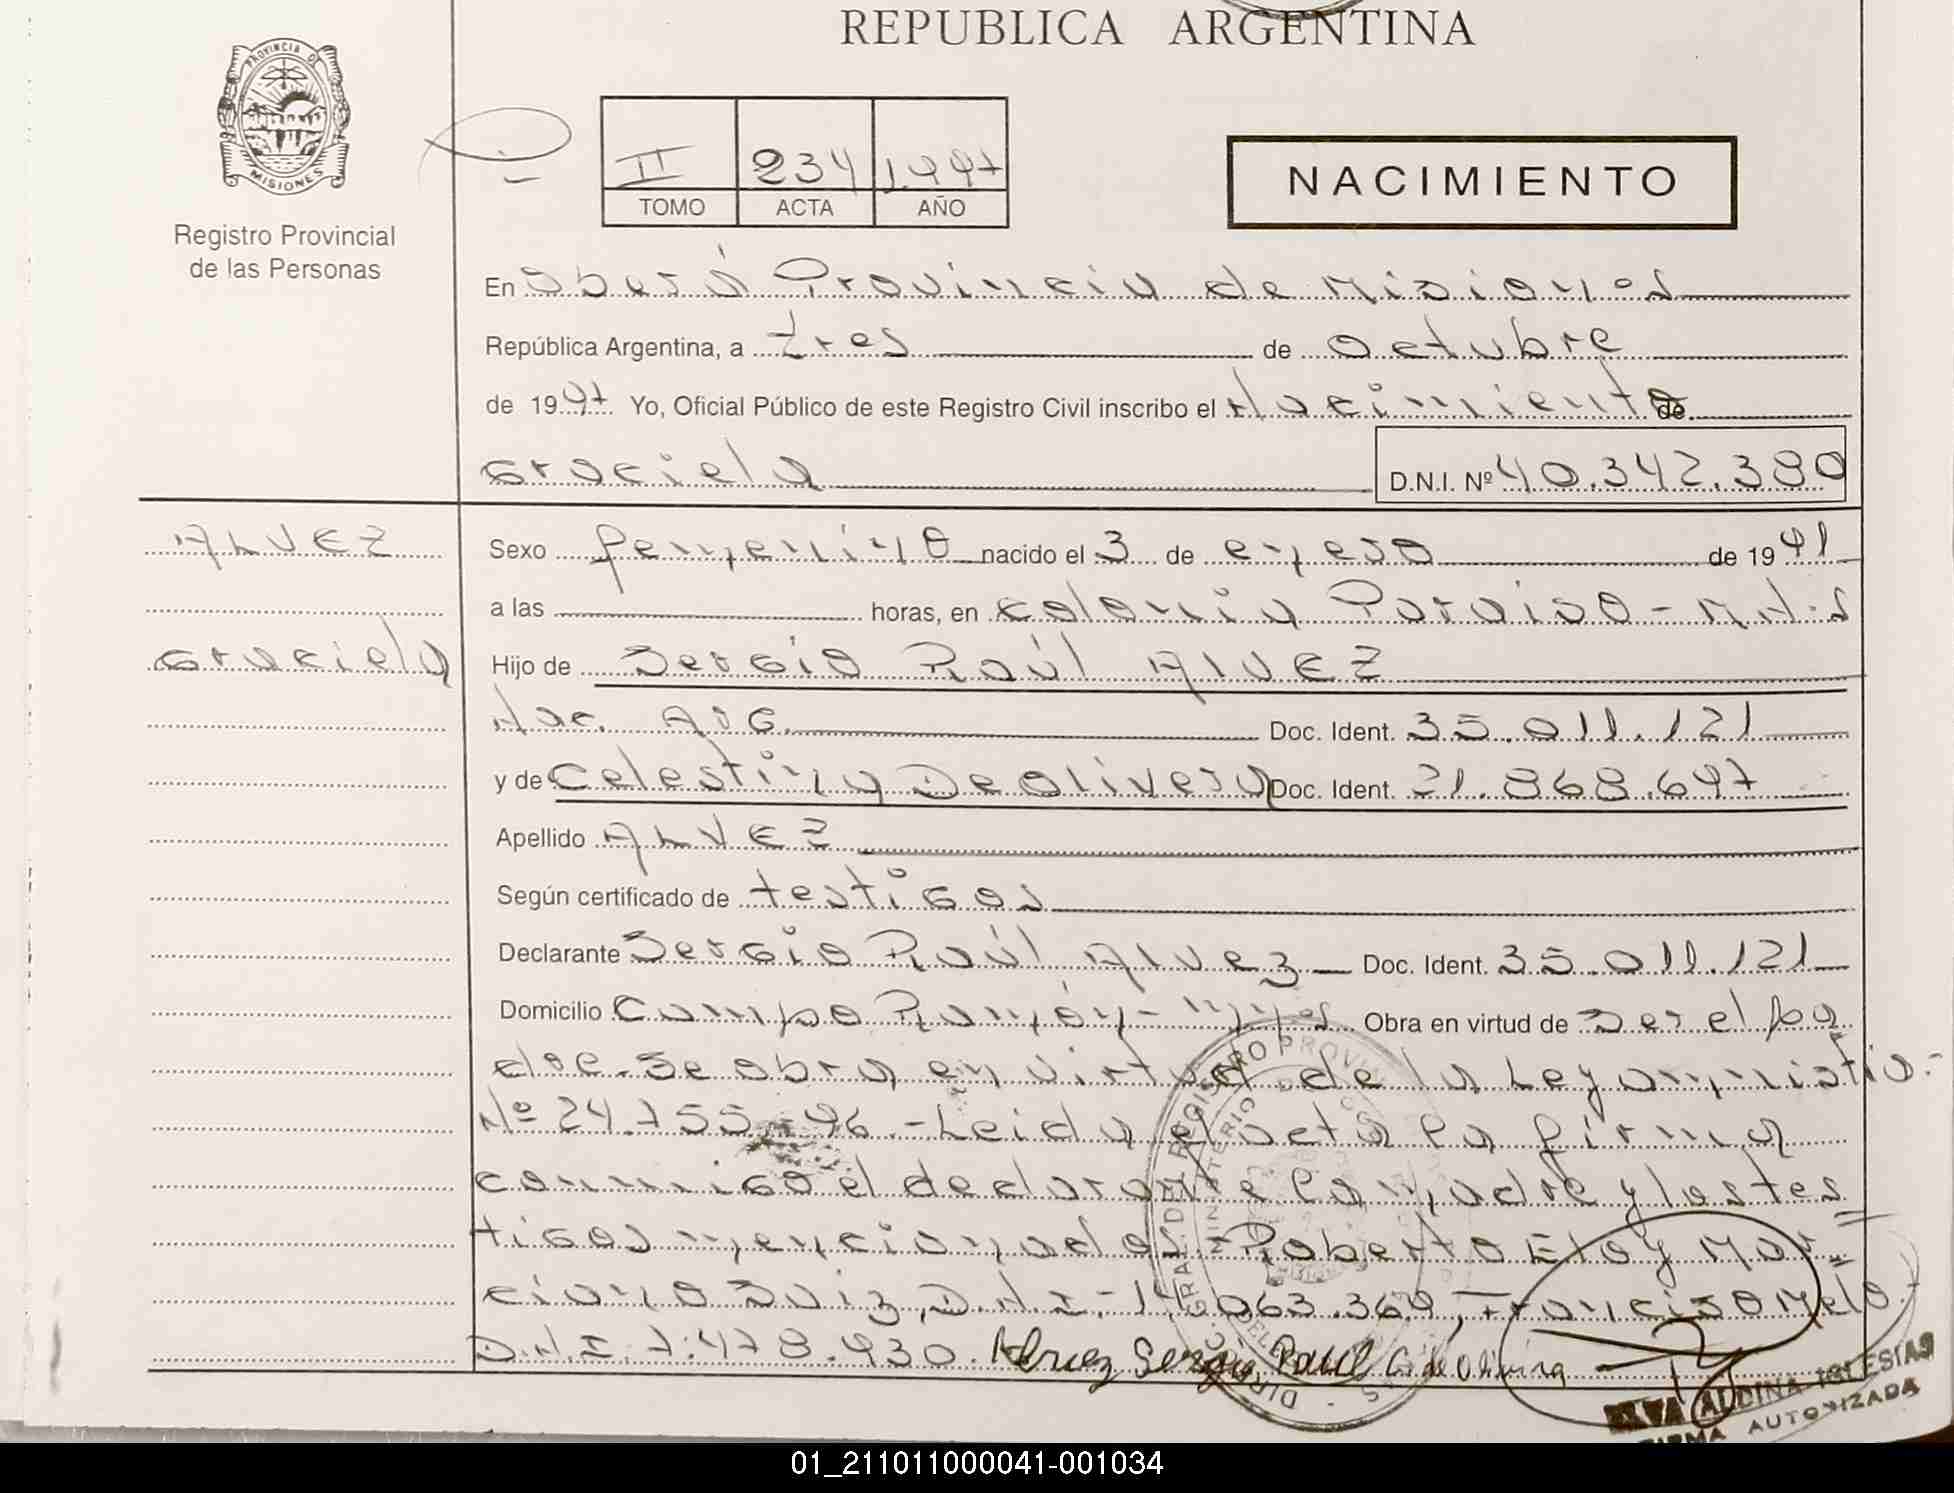 REPUBLICA ARGENTINA
PROVINCIA DE
MISIONES
Registro Provincial
de las Personas
II 234 1.997
TOMO ACTA AÑO
NACIMIENTO
En Oberá Provincia de Misiones
República Argentina, a tres de octubre
de 1997 Yo, Oficial Público de este Registro Civil inscribo el Nacimiento de
Graciela D.N.I. Nº 40.342.380
ALVEZ
Sexo femenino nacido el 3 de enero de 1991
a las horas, en Colonia Paraiso - M
Graciela
Hijo de Sergio Raúl Alvez
Nac. Arg. Doc. Ident. 35.011.121
y de Celestina De olivera Doc. Ident. 21.868.697
Apellido ALVEZ
Según certificado de testigos
Declarante Sergio Raúl Alvez Doc. Ident. 35.011.121
Domicilio Campo Ramón - Mnes Obra en virtud de ser el pa
dre. Se obra en virtud de la Ley amnistia.-
Nº 24.755-96.- Leida el acta la firma
conmigo el declarante la madre y los tes
tigos mencionados Roberto Eloy Mar
ciano D.N.I.- 063.369, Francisco Melo
D.N.I. 7.478.930. Alvez Sergio Raul C. de Olivera
ALDINA IGLESIAS
FIRMA AUTORIZADA
01_211011000041-001034